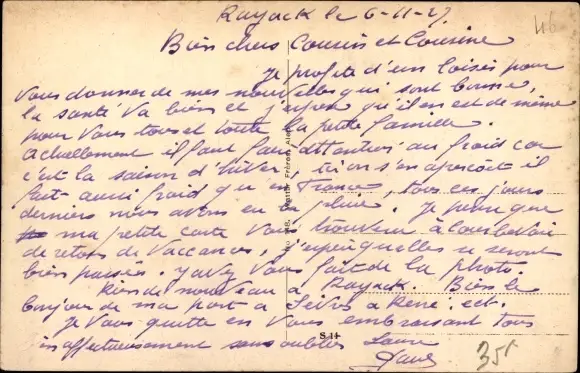 Rayack le 6-11-27.
46
Bien chers Cousin et Cousine
Je profite d'un loisir pour
vous donner de mes nouvelles qui sont bonnes,
la santé va bien et j'espère qu'il en est de même
pour vous tous et toute la petite famille.
Actuellement il faut faire attention au froid car
c'est la saison d'hiver, on s'aperçoit il
fait aussi froid qu'en France, tous ces jours
derniers nous avons eu la pluie. Je pense que
ma petite carte vous trouvera à Courbevoie
de retour de vaccances, j'espère qu'elles se seront
bien passées. Yavez vous fait de la photo.
Rien de nouveau à Rayack. Bien le
bonjour de ma part à à René. ect.
Je vous quitte en vous embrassant tous
affectueusement sans oublier
S 11
35